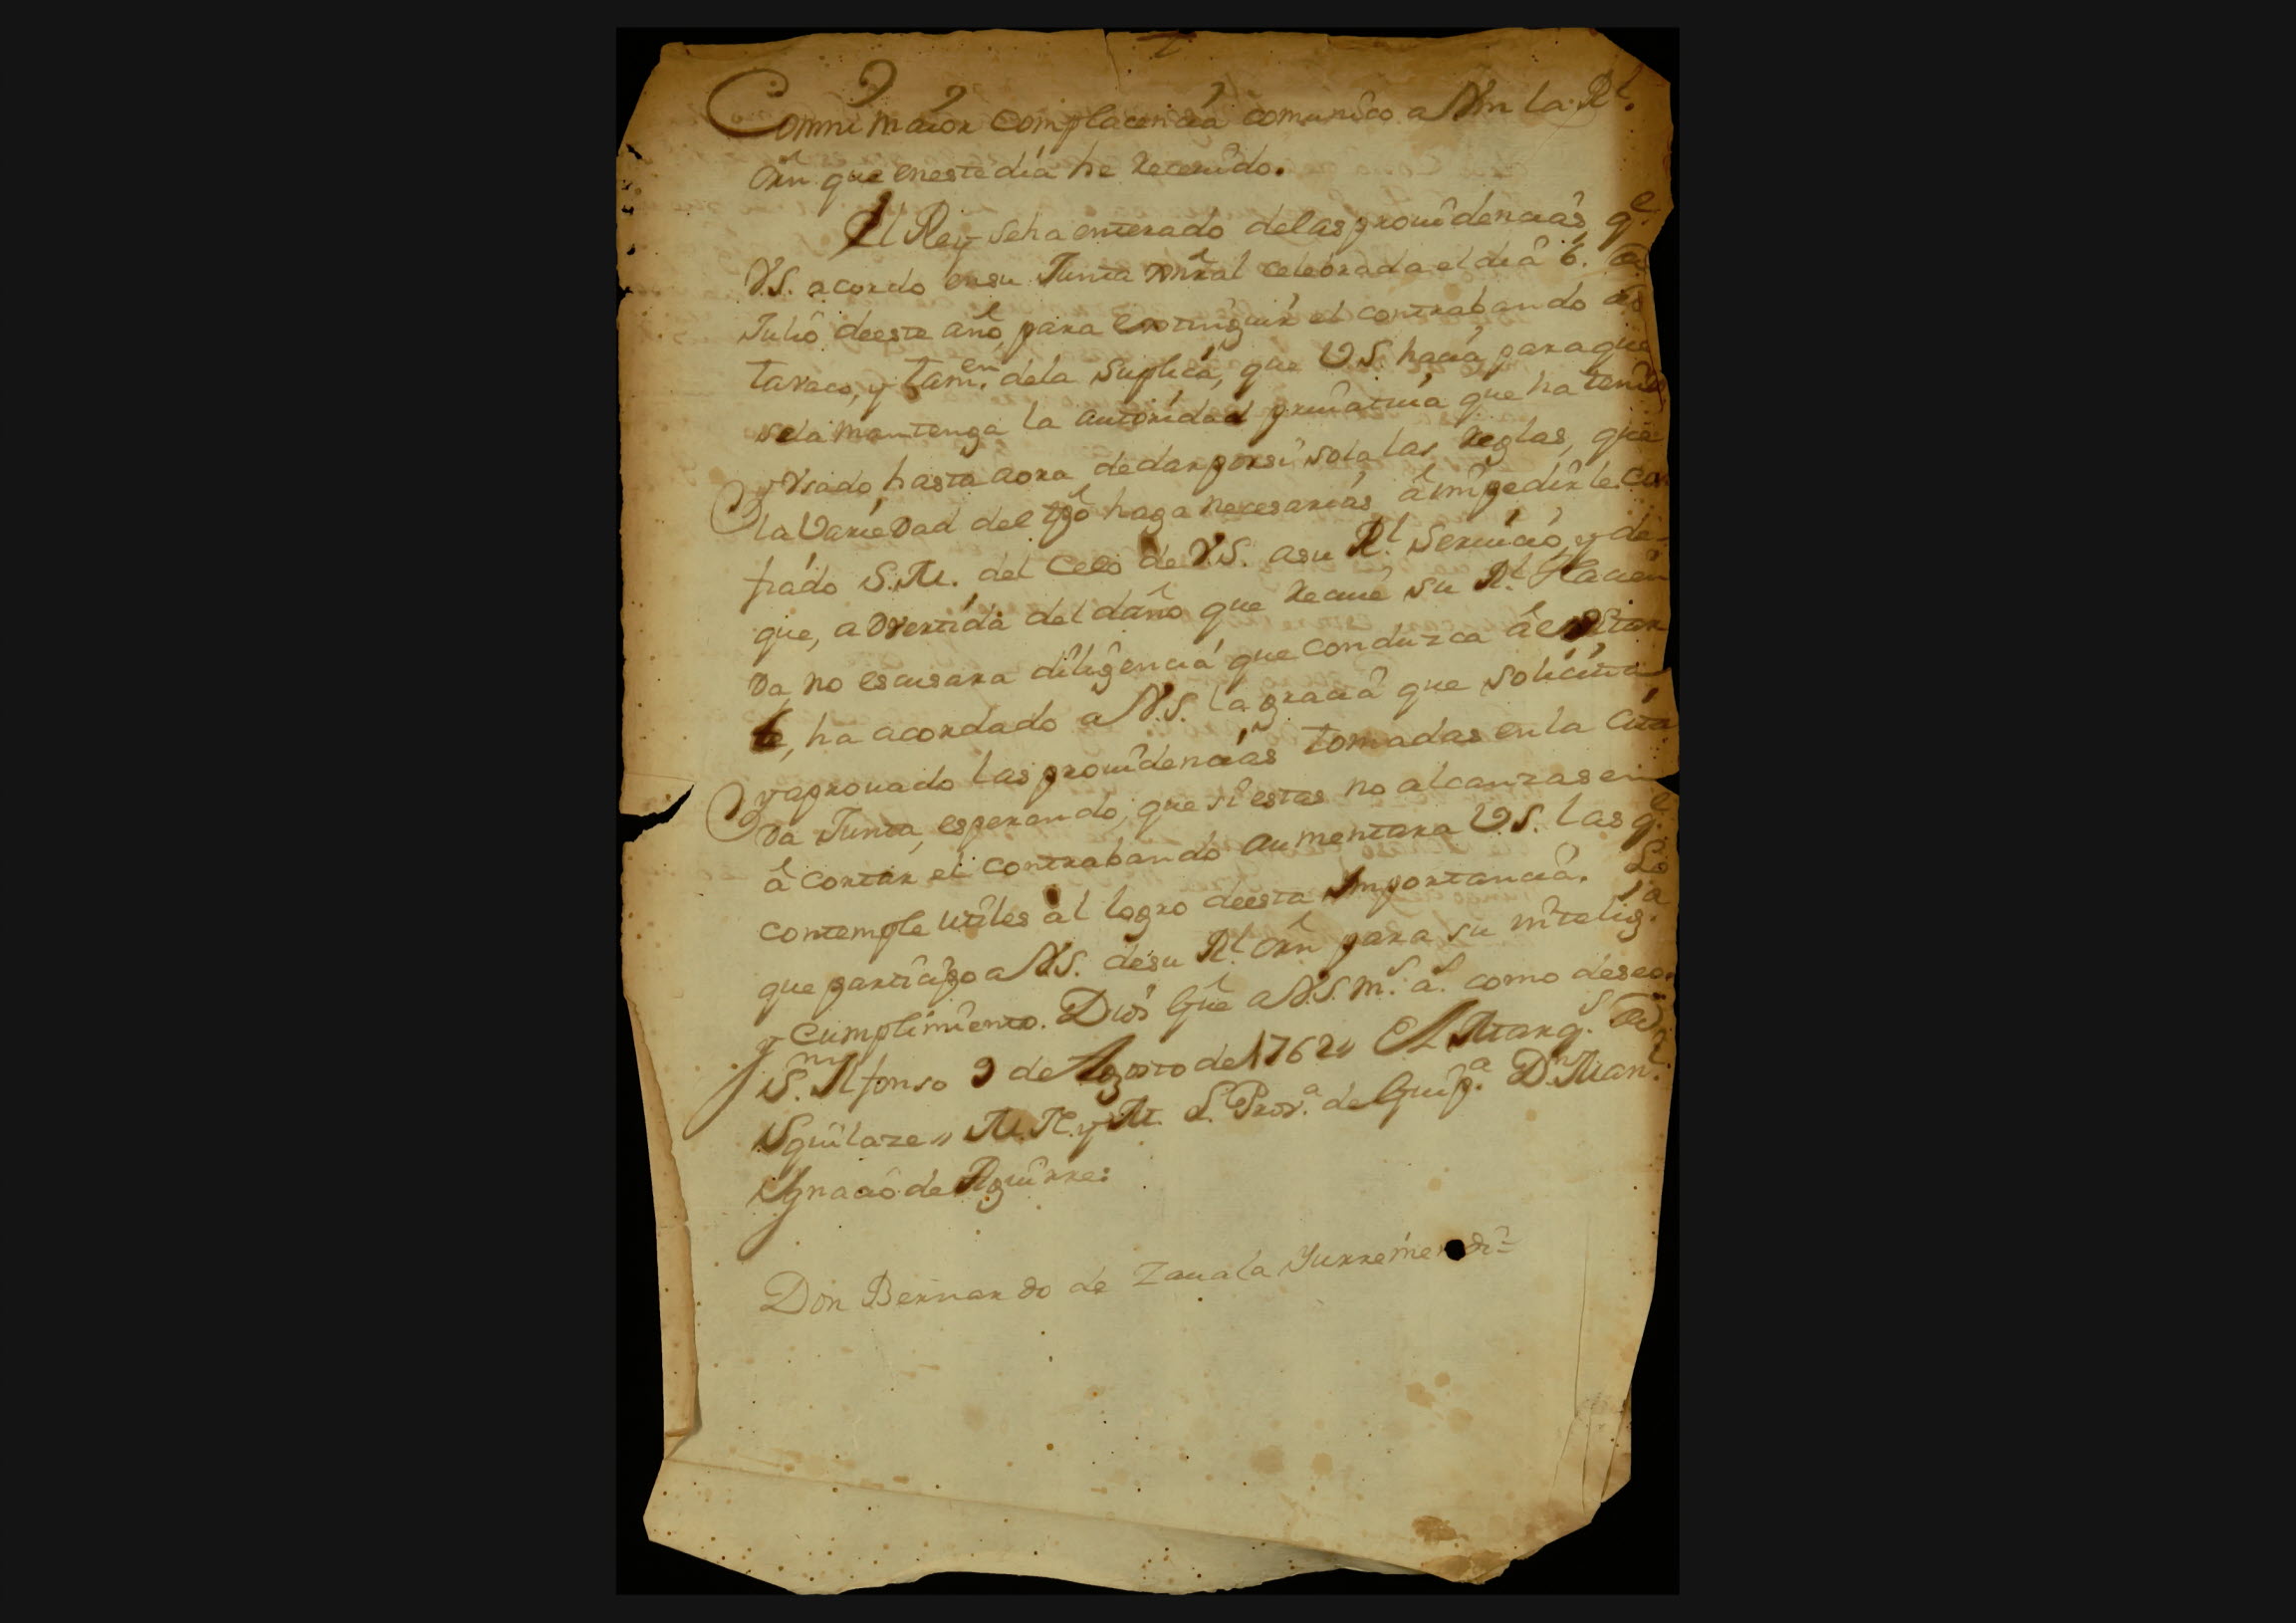 Conmi maior complacencia comunico a Vm la Rl.
Orn que eneste dia he recevido.
El Rey seha enterado delas providencias qe.
VS. acordo ensu Junta gñral celebrada el dia 6. de
Julio deeste año, para extinguir el contrabando de
tavaco, y tamen. dela suplica, que VS. hacia paraque
sela mantenga la autoridad privativa que ha tenido
y Usado hasta aora dedar porsi sola las reglas, que
la Variedad del tpo haga necesarias â impedirle. Con
fiado S.M. del Celo de V.S. asu Rl. Servicio, y de
que, advertida del daño que recive su Rl. Hacien
da, no escusara diligencia que conduzca â evitar
le, ha acordado a V.S. la gracia que solicita
y aprovado las providencias tomadas en la cita
da Junta, esperando, que si estas no alcanzasen
â cortar el contrabando aumentara VS. las qe.
contemple utiles al logro deesta Importancia. Lo
que participo a V.S. desu Rl. Orn para su inteliga.
y Cumplimiento. Dios Gûe a V.S. ms. as. como deseo.
Sn. Ylfonso 9 de Agosto de 1762 〃 El Marqs. de
Squilaze 〃 M. N. y M. L. Prova. de Guipa. Dn. Manl.
Ygnacio de Aguirre:
Don Bernardo de Zavala Yurremendi